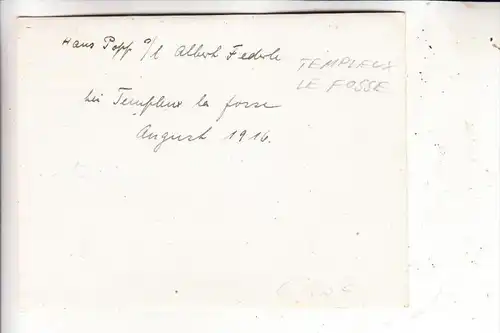 Hans Popp o/l Albert Federle
TEMPLEUX
LE FOSSE
bei Templeux la fosse
August 1916.